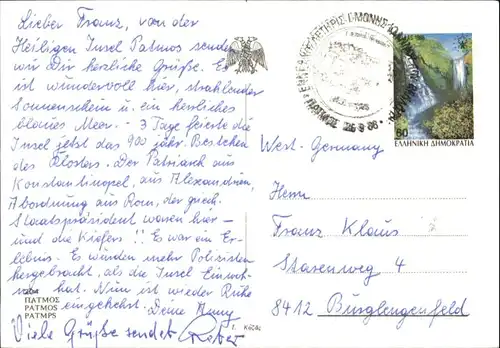 Lieber Franz, von der
Heiligen Insel Patmos senden
wir Dir herzliche Grüße. Es
ist wundervoll hier, strahlender
Sonnenschein u. ein herrliches
blaues Meer. - 3 Tage feierte die
Insel jetzt das 900 jähr. Bestehen
des Klosters. Der Patriarch aus
Konstantinopel, aus Alexandrien,
Abordnung aus Rom, der griech.
Staatspräsident waren hier -
und die Kiefers !! Es war ein Er-
lebnis. Es wurden mehr Polizisten
hergebracht, als die Insel Einwoh-
ner hat. Nun ist wieder Ruhe
eingekehrt. Deine
Viele Grüße sendet
ΠΑΤΜΟΣ
PATMOS
PATMPS
ΠΑΤΜΟΣ 26 9 88
60
ΕΛΛΗΝΙΚΗ ΔΗΜΟΚΡΑΤΙΑ
West-Germany
Herrn
Franz Klaus
Stasenweg 4
8412 Burglengenfeld